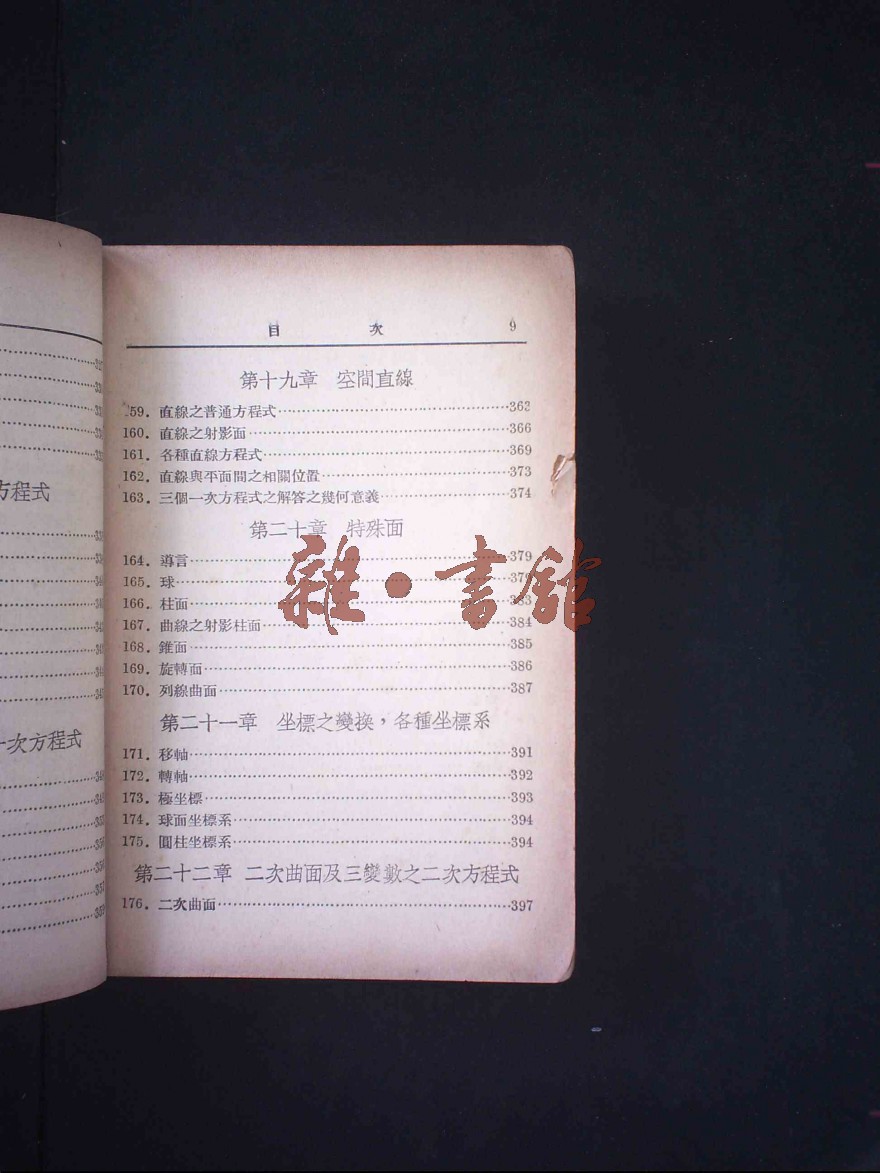 方程式
一次方程式
目 次 9
第十九章 空間直線
159. 直線之普通方程式 363
160. 直線之射影面 366
161. 各種直線方程式 369
162. 直線與平面間之相關位置 373
163. 三個一次方程式之解答之幾何意義 374
第二十章 特殊面
164. 導言 379
165. 球 379
166. 柱面 383
167. 曲線之射影柱面 384
168. 錐面 385
169. 旋轉面 386
170. 列線曲面 387
第二十一章 坐標之變換,各種坐標系
171. 移軸 391
172. 轉軸 392
173. 極坐標 393
174. 球面坐標系 394
175. 圓柱坐標系 394
第二十二章 二次曲面及三變數之二次方程式
176. 二次曲面 397
雜·書館